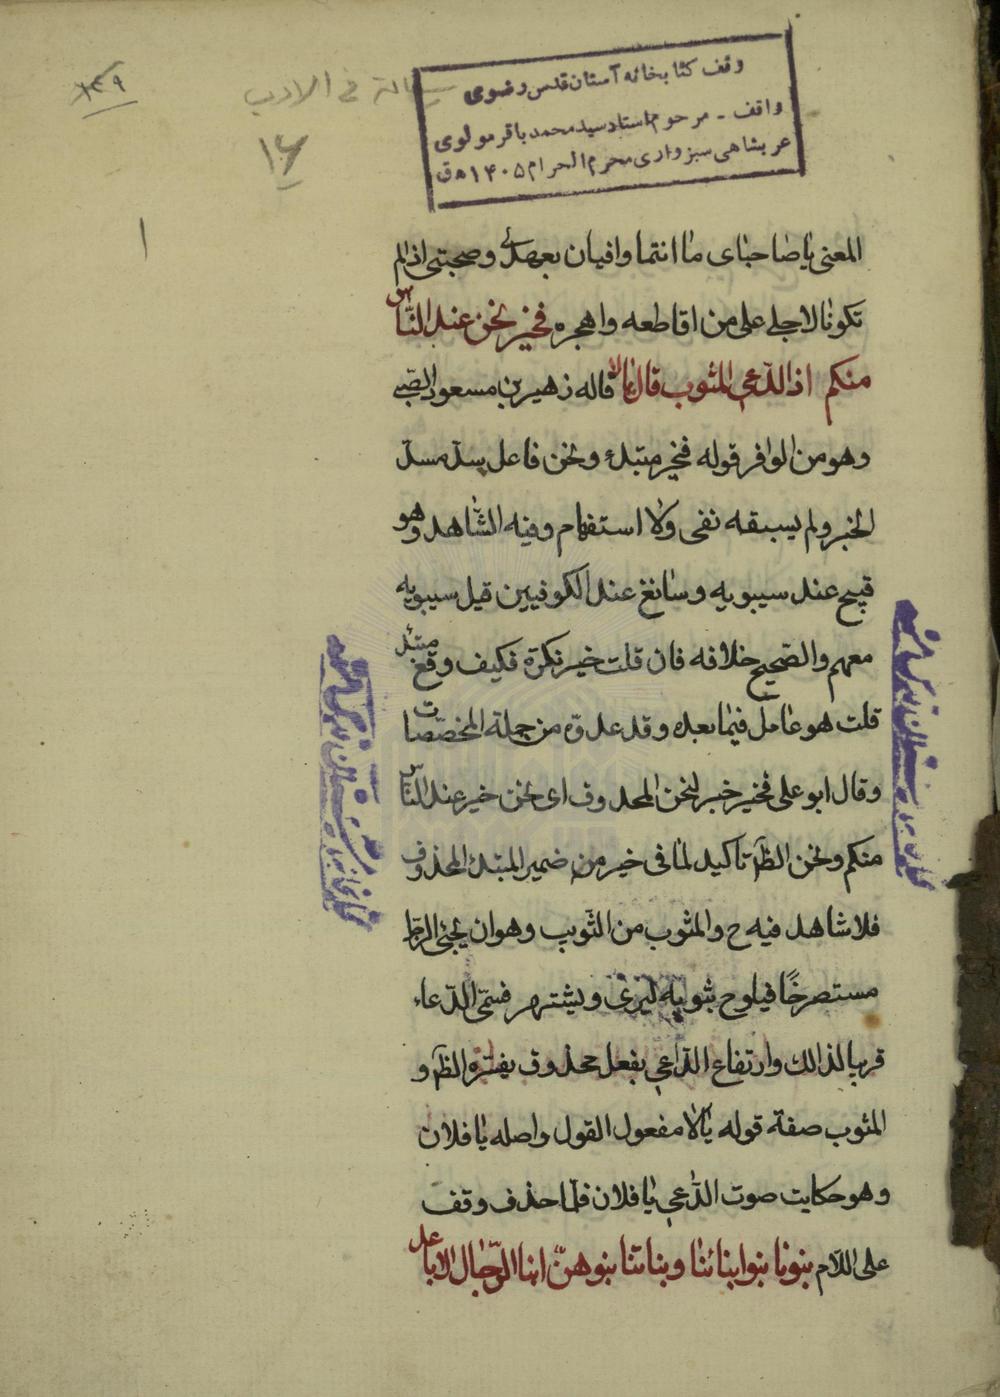 ۱۴۹
رسالة في الادب
۱۶
۱
وقف کتابخانه آستان قدس رضوی
واقف - مرحوم استاد سید محمد باقر مولوی
عربشاهی سبزواری محرم الحرام ۱۴۰۵ ه ق
المعنى يا صاحباى ما انتما وافيان بعهدى وصحبتى اذا لم
تكونا لاجلى على من اقاطعه واهجره فخير نحن عند الناس
منكم اذا الداعى المثوب قال يالا قاله زهير بن مسعود الضبى
وهو من الوافر قوله فخير مبتدء ونحن فاعل يسد مسد
الخبر ولم يسبقه نفى ولا استفهام وفيه الشاهد وهو
قبيح عند سيبويه وسائغ عند الكوفيين قيل سيبويه
معهم والصحيح خلافه فان قلت خير نكرة فكيف وقع مبتدء
قلت هو عامل فيما بعده وقد عدوه من جملة المخصصات
وقال ابو على فخير خبر لنحن المحذوف اى نحن خير عند الناس
منكم ونحن الظاهر تاكيد لما فى خير من ضمير المبتدء المحذوف
فلا شاهد فيه ح والمثوب من التثويب وهو ان يجئ الرجل
مستصرخًا فيلوح بثوبه ليرى ويشتهر فسمى الدعاء
قريبا لذالك وارتفاع الداعى بفعل محذوف يفسره الظاهر و
المثوب صفة قوله يالا مفعول القول واصله يا فلان
وهو حكايت صوت الداعى يا فلان فلما حذف وقف
على اللام بنونا بنوا بنائنا وبناتنا بنوهن ابنا الرجال الاباعد